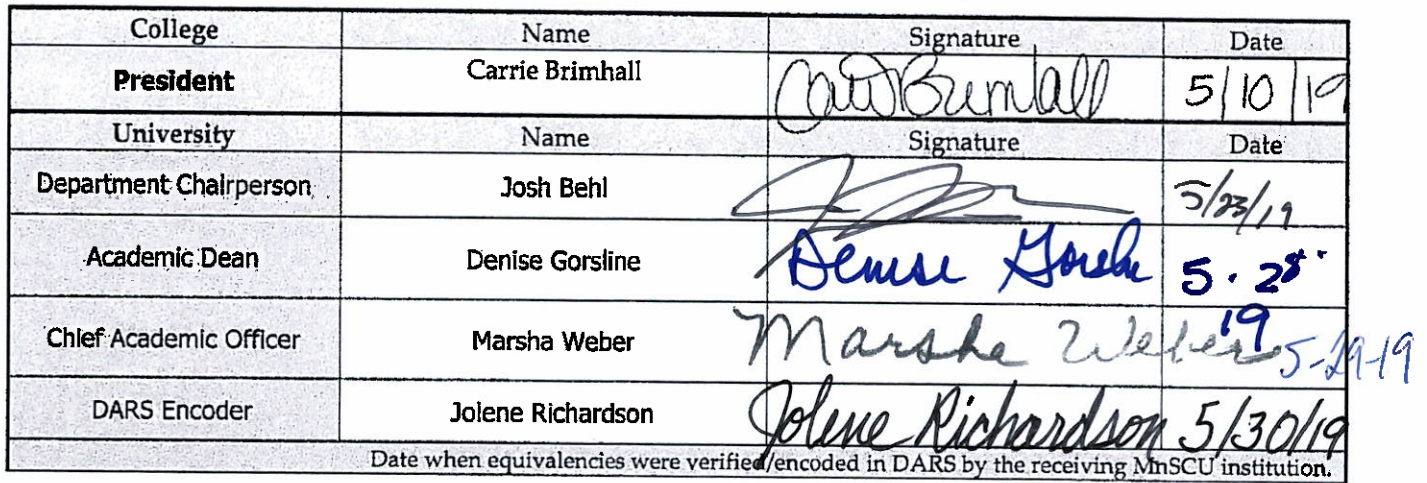 College Name Signature Date
President Carrie Brimhall Carrie Brimhall 5/10/19
University Name Signature Date
Department Chairperson Josh Behl 5/23/19
Academic Dean Denise Gorsline Denise Gorsline 5·28·
19
Chief Academic Officer Marsha Weber Marsha Weber 5-29-19
DARS Encoder Jolene Richardson Jolene Richardson 5/30/19
Date when equivalencies were verified/encoded in DARS by the receiving MnSCU institution.